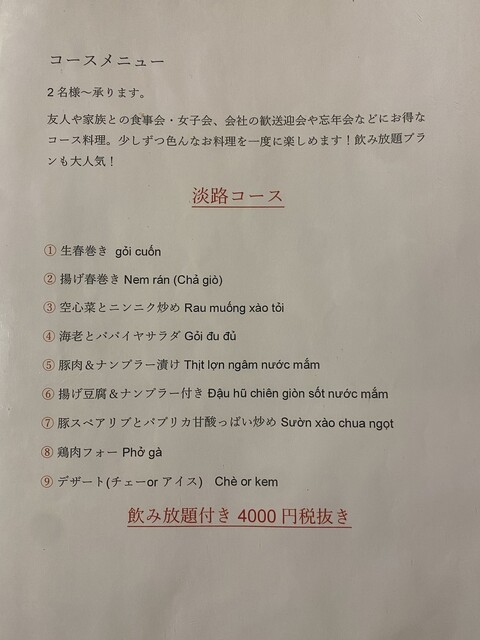 コースメニュー
2名様～承ります。
友人や家族との食事会・女子会、会社の歓送迎会や忘年会などにお得な
コース料理。少しずつ色んなお料理を一度に楽しめます！飲み放題プラ
ンも大人気！
淡路コース
① 生春巻き gỏi cuốn
② 揚げ春巻き Nem rán (Chả giò)
③ 空心菜とニンニク炒め Rau muống xào tỏi
④ 海老とパパイヤサラダ Gỏi đu đủ
⑤ 豚肉＆ナンプラー漬け Thịt lợn ngâm nước mắm
⑥ 揚げ豆腐＆ナンプラー付き Đậu hũ chiên giòn sốt nước mắm
⑦ 豚スペアリブとパプリカ甘酸っぱい炒め Sườn xào chua ngọt
⑧ 鶏肉フォー Phở gà
⑨ デザート(チェーor アイス) Chè or kem
飲み放題付き 4000 円税抜き